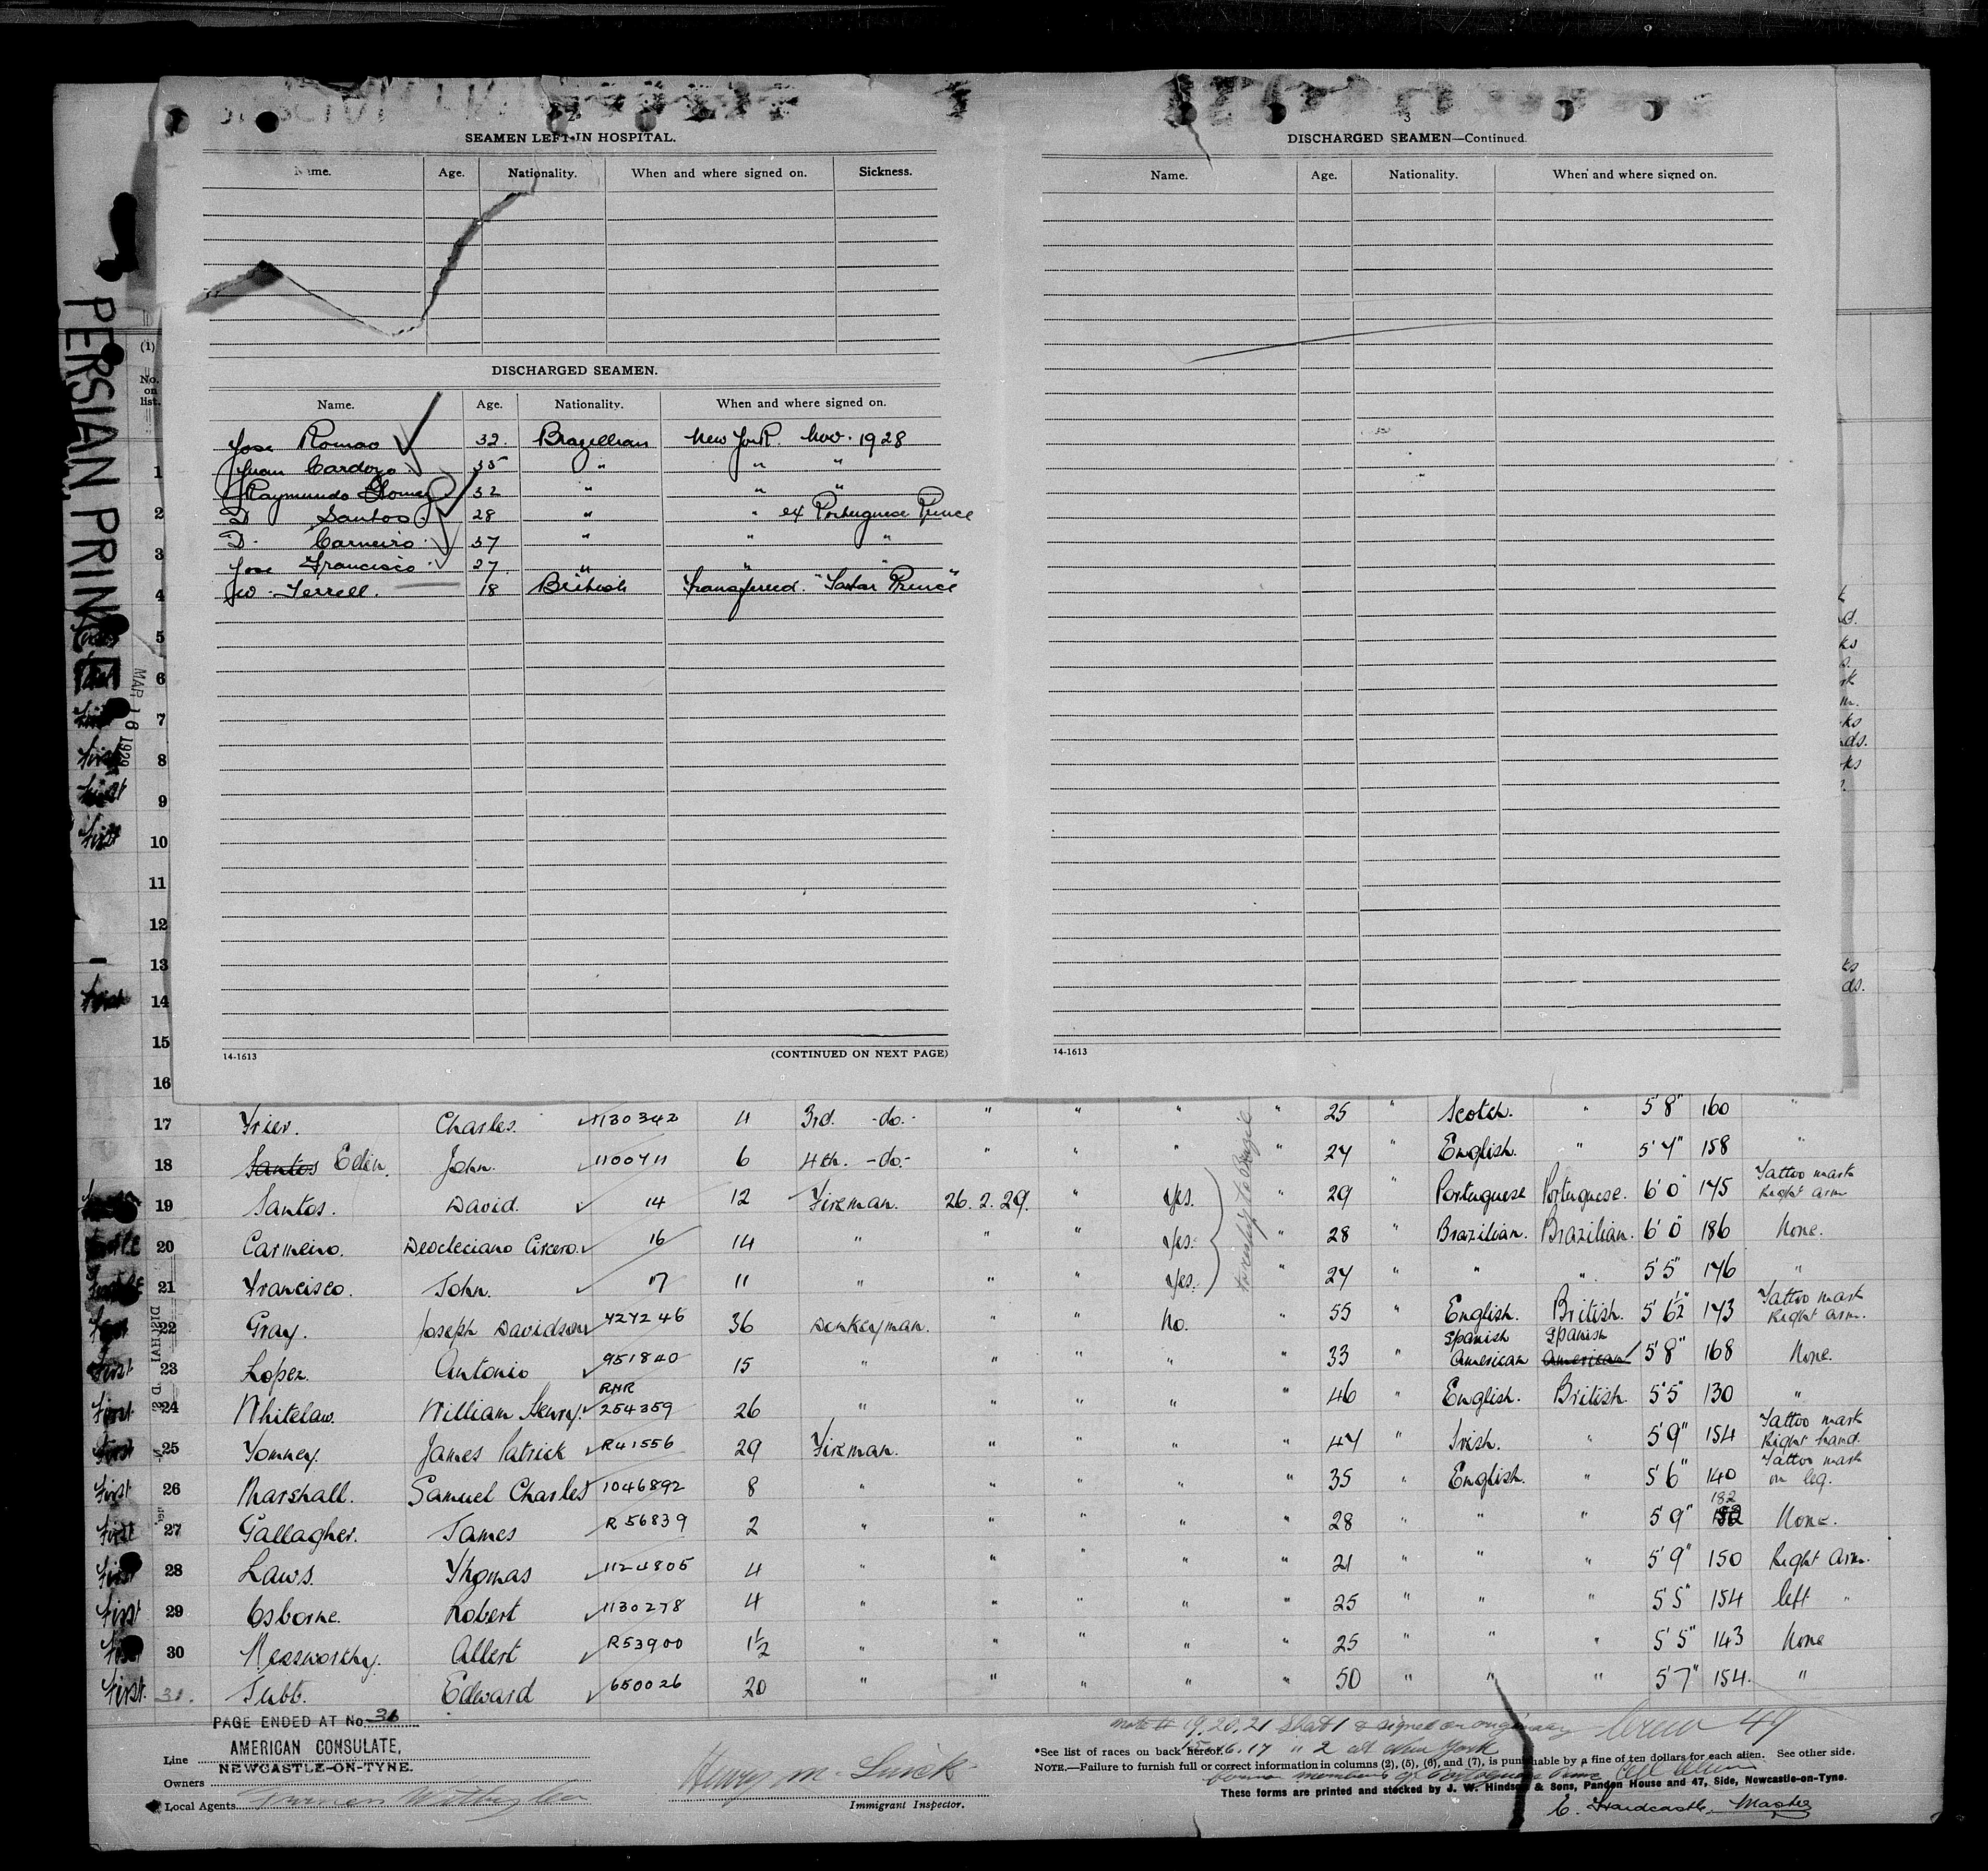 2
SEAMEN LEFT IN HOSPITAL.
Name. Age. Nationality. When and where signed on. Sickness.
DISCHARGED SEAMEN.
Name. Age. Nationality. When and where signed on.
Jose Romao 32. Brazillian New York Nov. 1928
Juan Cardozo 35 " " "
Raymundo Gomez 32 " " "
D Santos 28 " " ex Portuguese Prince
D. Carneiro. 37 " " "
Jose Francisco. 27 " " "
W. Terrell. 18 British Transferred. "Tartar Prince"
14-1613 (CONTINUED ON NEXT PAGE)
3
DISCHARGED SEAMEN—Continued.
Name. Age. Nationality. When and where signed on.
14-1613
PERSIAN PRINCE
MAR 16 1929
(1)
No. on list.
1
2
3
4
5
6
7
8
9
10
11
12
13
14
15
16
17 Frier. Charles. 1130342 11 3rd. -do.- " " " " 25 " Scotch. " 5'8" 160 "
18 Santos Eden. John. 1100711 6 4th. -do.- " " " " 27 " English. " 5'7" 158 "
19 Santos. David. 14 12 Fireman. 26.2.29. " Yes. " 29 " Portuguese Portuguese. 6'0" 175 Tattoo mark Right arm
20 Carmeiro. Deocleciano Circero. 16 14 " " " Yes. " 28 " Brazilian. Brazilian. 6'0" 186 None.
21 Francisco. John. 17 11 " " " Yes. " 27 " " " 5'5" 176 "
22 Gray. Joseph Davidson 727246 36 Donkeyman. " " No. " 55 " English. British. 5'6½" 173 Tattoo mark Right arm.
23 Lopez. Antonio 951840 15 " " " " " 33 " Spanish American Spanish American 5'8" 168 None.
24 Whitelaw. William Henry. RNR 254359 26 " " " " " 46 " English. British. 5'5" 130 "
25 Tonney. James Patrick R41556 29 Fireman. " " " " 47 " Irish. " 5'9" 154 Tattoo mark Right hand.
26 Marshall. Samuel Charles 1046892 8 " " " " " 35 " English. " 5'6" 140 Tattoo mark on leg.
First 27 Gallagher. James R 56839 2 " " " " " 28 " " " 5'9" 182 None.
First 28 Laws. Thomas 1124805 4 " " " " " 21 " " " 5'9" 150 Right Arm.
First 29 Osborne. Robert 1130278 4 " " " " " 25 " " " 5'5" 154 left "
30 Messworthy. Albert R53900 1½ " " " " " 25 " " " 5'5" 143 None
First. 31. Tubb. Edward 650026 20 " " " " " 50 " " " 5'7" 154. "
PAGE ENDED AT No. 31
AMERICAN CONSULATE,
NEWCASTLE-ON-TYNE.
Line
Owners
Local Agents
Immigrant Inspector.
Crew 49
*See list of races on back hereof.
NOTE.—Failure to furnish full or correct information in columns (2), (5), (6), and (7), is punishable by a fine of ten dollars for each alien. See other side.
These forms are printed and stocked by J. W. Hindson & Sons, Pandon House and 47, Side, Newcastle-on-Tyne.
C. Hardcastle, Master